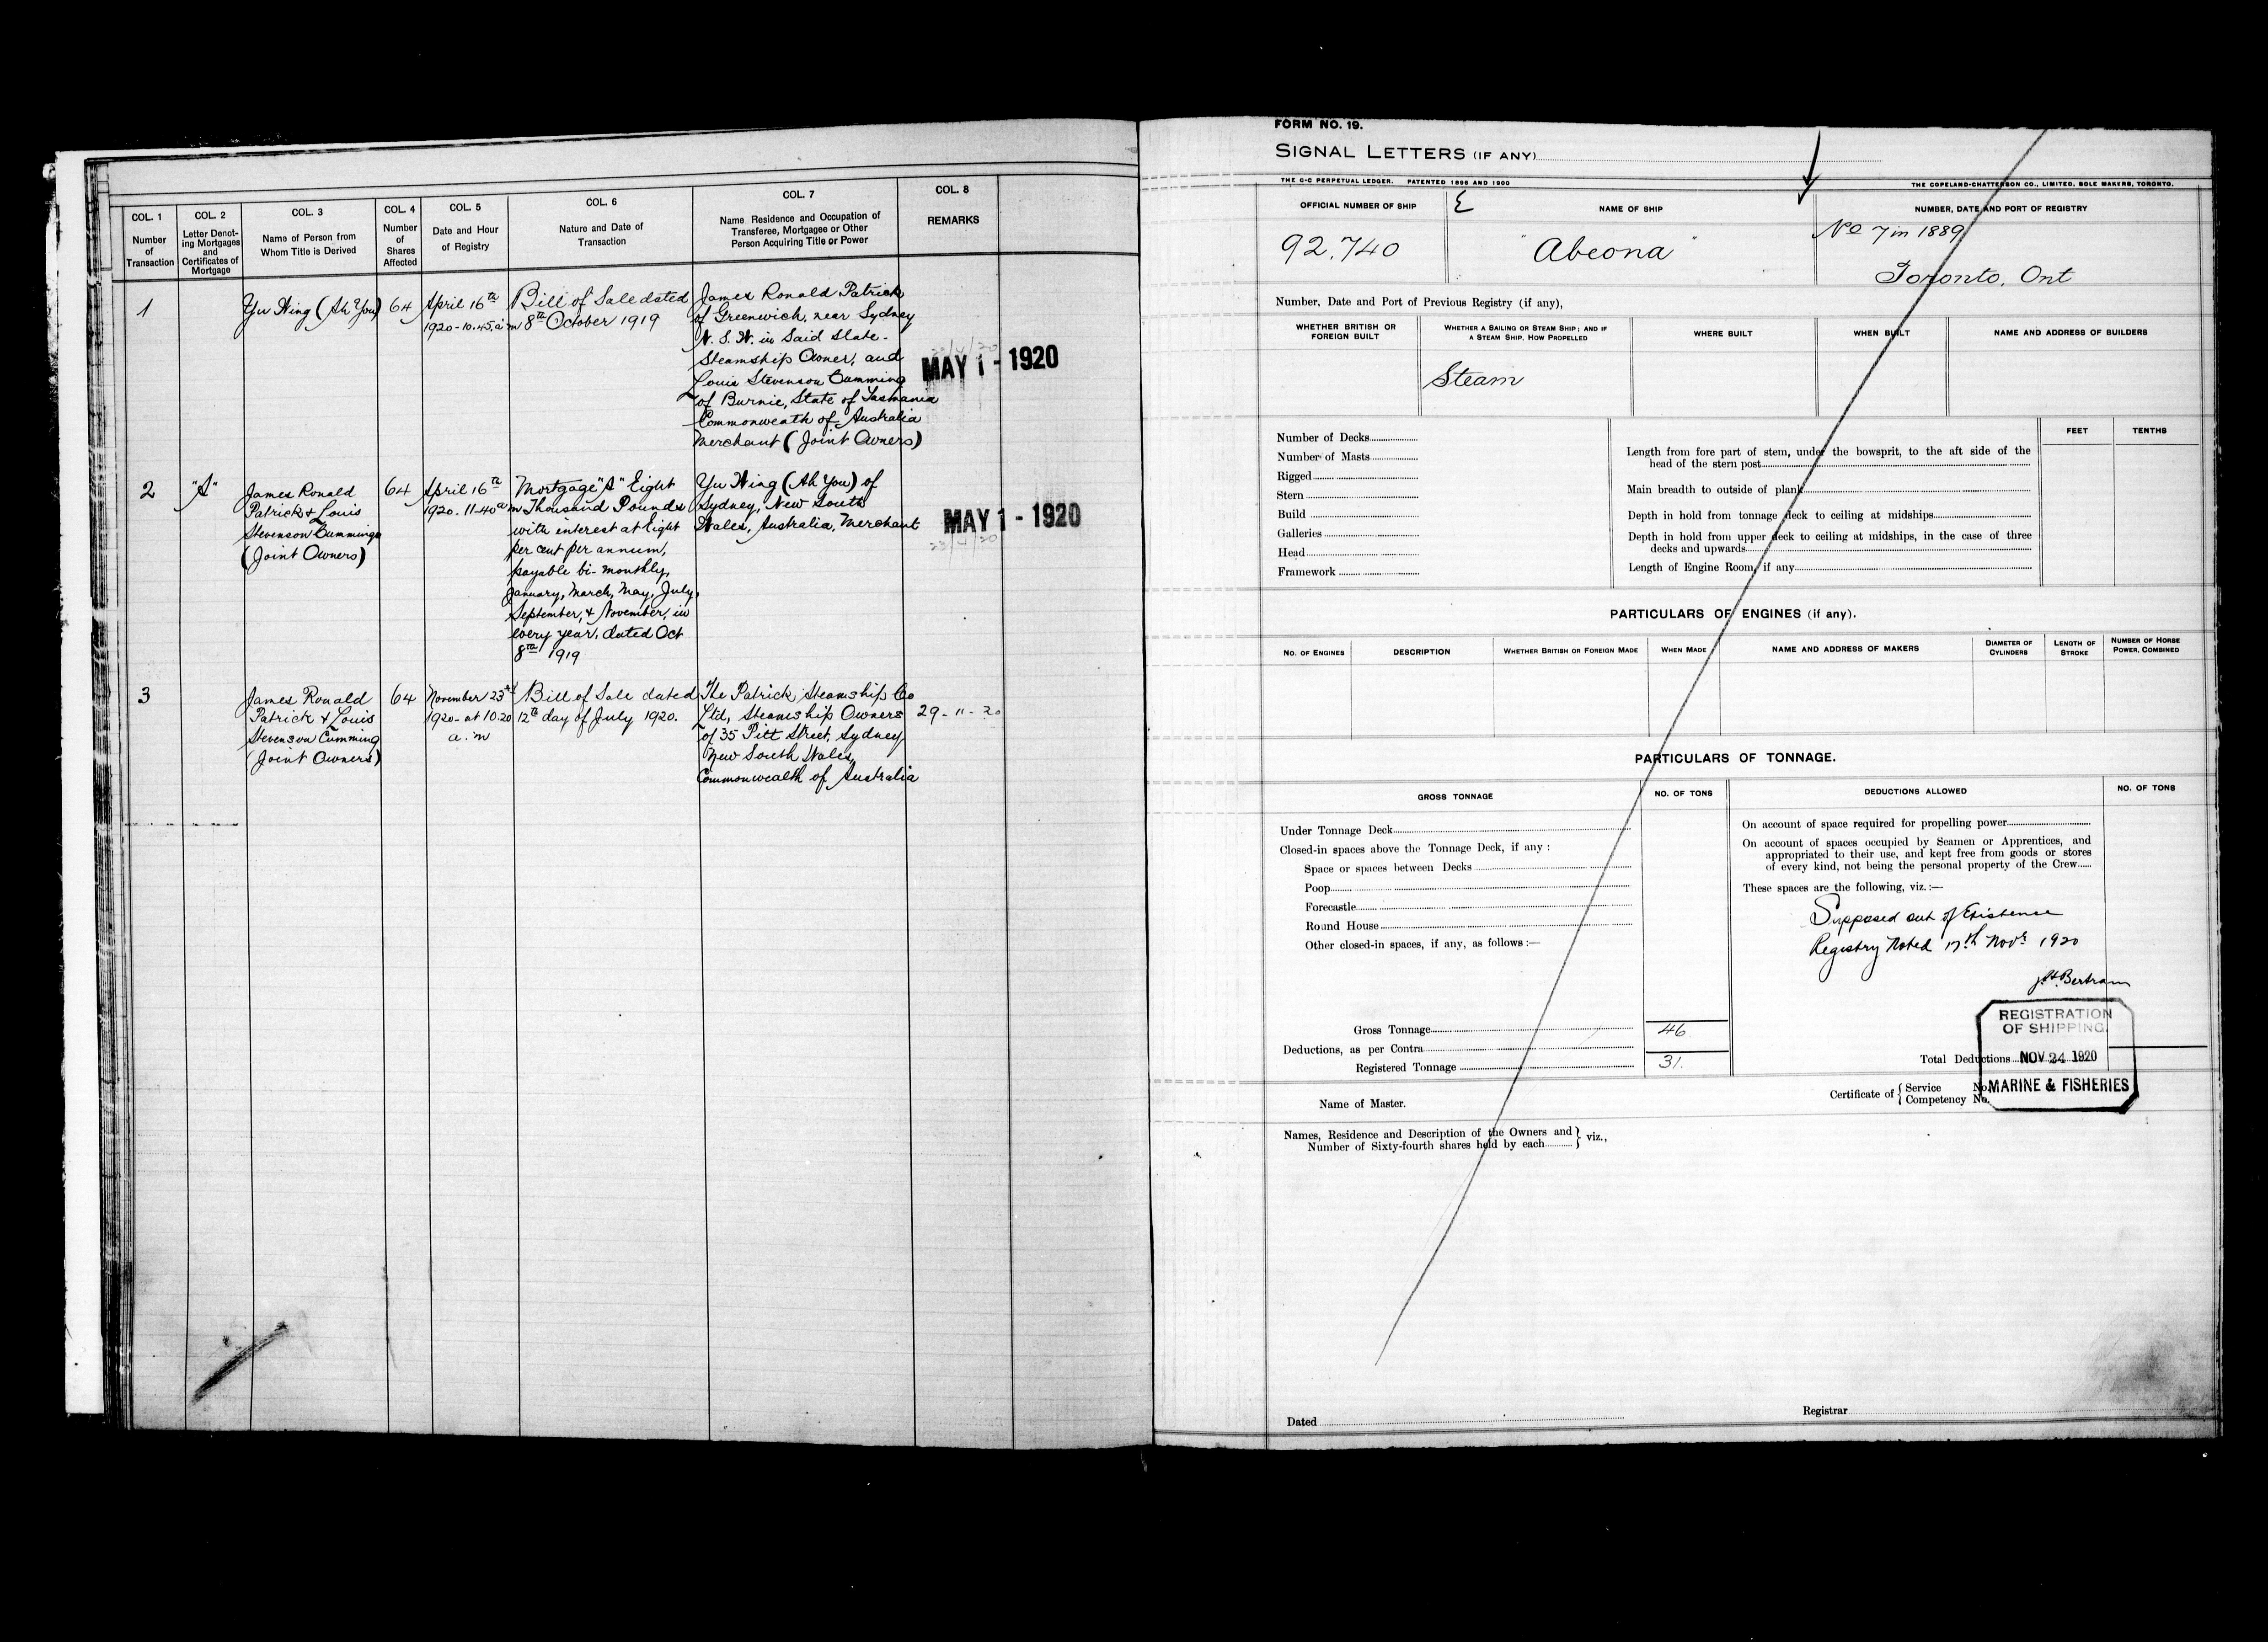 COL. 1
Number
of
Transaction
COL. 2
Letter Denot-
ing Mortgages
and
Certificates of
Mortgage
COL. 3
Name of Person from
Whom Title is Derived
COL. 4
Number
of
Shares
Affected
COL. 5
Date and Hour
of Registry
COL. 6
Nature and Date of
Transaction
COL. 7
Name Residence and Occupation of
Transferee, Mortgagee or Other
Person Acquiring Title or Power
COL. 8
REMARKS
1
Yu Wing (Ah You)
64
April 16th
1920-10.45. a.m
Bill of Sale dated
8th October 1919
James Ronald Patrick
of Greenwich, near Sydney
N. S. W. in Said State-
Steamship Owner, and
Louis Stevenson Cumming
of Burnie, State of Tasmania
Commonweath of Australia
Merchant (Joint Owners)
23/4/20
MAY 1 - 1920
2
"A"
James Ronald
Patrick & Louis
Stevenson Cummings
(Joint Owners)
64
April 16th
1920. 11-40 a.m
Mortgage "A" Eight
Thousand Pounds
with interest at Eight
per cent per annum,
payable bi-monthly,
January, March, May, July,
September, & November, in
every year, dated Oct
8th 1919
Yu Wing (Ah You) of
Sydney, New South
Wales, Australia, Merchant
MAY 1 - 1920
23/4/20
3
James Ronald
Patrick & Louis
Stevenson Cumming
(Joint Owners)
64
November 23rd
1920- at 10.20
a.m
Bill of Sale dated
12th day of July 1920.
The Patrick Steamship Co
Ltd, Steamship Owners
of 35 Pitt Street, Sydney
New South Wales,
Commonwealth of Australia
29-11-20
FORM NO. 19.
SIGNAL LETTERS (IF ANY)
THE C-C PERPETUAL LEDGER. PATENTED 1896 AND 1900
THE COPELAND-CHATTERSON CO., LIMITED, SOLE MAKERS, TORONTO.
OFFICIAL NUMBER OF SHIP
NAME OF SHIP
NUMBER, DATE AND PORT OF REGISTRY
92.740
"Abeona"
No 7 in 1889
Toronto, Ont
Number, Date and Port of Previous Registry (if any),
WHETHER BRITISH OR
FOREIGN BUILT
WHETHER A SAILING OR STEAM SHIP; AND IF
A STEAM SHIP, HOW PROPELLED
WHERE BUILT
WHEN BUILT
NAME AND ADDRESS OF BUILDERS
Steam
Number of Decks
Number of Masts
Rigged
Stern
Build
Galleries
Head
Framework
FEET
TENTHS
Length from fore part of stem, under the bowsprit, to the aft side of the
head of the stern post
Main breadth to outside of plank
Depth in hold from tonnage deck to ceiling at midships
Depth in hold from upper deck to ceiling at midships, in the case of three
decks and upwards
Length of Engine Room, if any
PARTICULARS OF ENGINES (if any).
NO. OF ENGINES
DESCRIPTION
WHETHER BRITISH OR FOREIGN MADE
WHEN MADE
NAME AND ADDRESS OF MAKERS
DIAMETER OF
CYLINDERS
LENGTH OF
STROKE
NUMBER OF HORSE
POWER, COMBINED
PARTICULARS OF TONNAGE.
GROSS TONNAGE
NO. OF TONS
DEDUCTIONS ALLOWED
NO. OF TONS
Under Tonnage Deck
Closed-in spaces above the Tonnage Deck, if any :
Space or spaces between Decks
Poop
Forecastle
Round House
Other closed-in spaces, if any, as follows :—
On account of space required for propelling power
On account of spaces occupied by Seamen or Apprentices, and
appropriated to their use, and kept free from goods or stores
of every kind, not being the personal property of the Crew
These spaces are the following, viz. :—
Supposed out of Existence
Registry Noted 17th Novr 1920
Bertram
Gross Tonnage
46
Deductions, as per Contra
Registered Tonnage
31.
REGISTRATION
OF SHIPPING.
NOV 24 1920
MARINE & FISHERIES
Total Deductions
Name of Master.
Certificate of { Service No.
Competency No.
Names, Residence and Description of the Owners and
Number of Sixty-fourth shares held by each } viz.,
Dated
Registrar